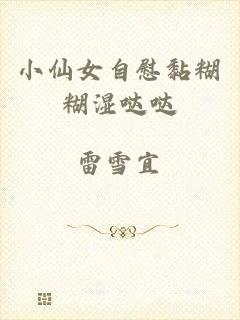 小仙女自慰黏糊
糊湿哒哒
雷雪宜